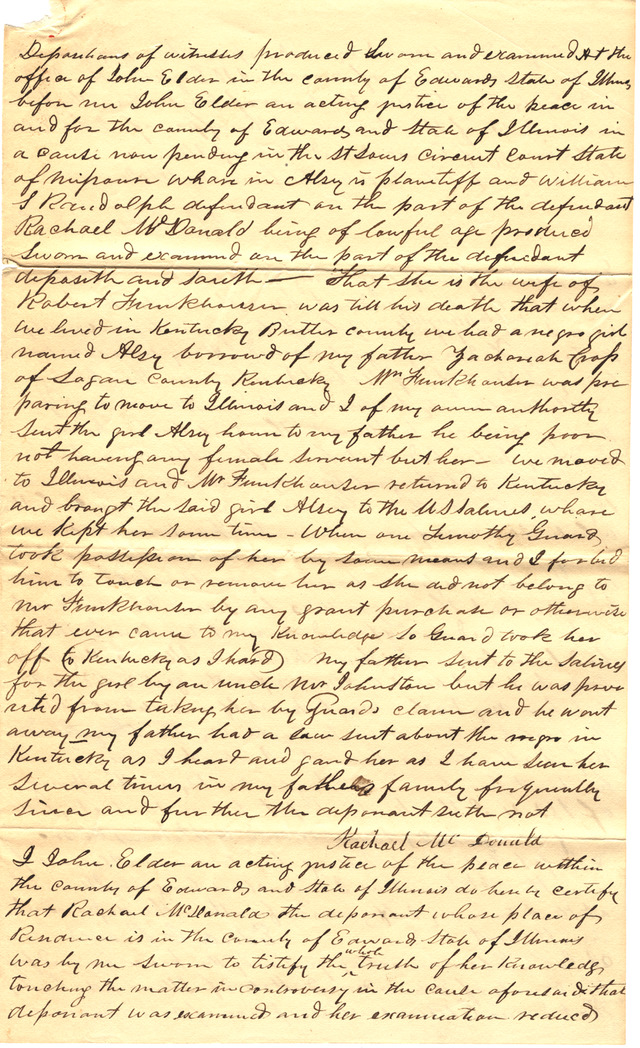 Depositions of witnesses produced sworn and examined At the
office of John Elder in the county of Edwards State of Illinois
before me John Elder an acting justice of the peace in
and for the county of Edwards and State of Illinois in
a cause now pending in the St Louis circuit court State
of missouri whare in Alsey is plaintiff and William
S Randolph defendant on the part of the defendant
Rachael McDonald being of lawful age produced
sworn and examined on the part of the defendant
deposeth and saieth — That she is the wife of
Robert Funkhouser was till his death that when
we lived in Kentucky Butler county we had a negro girl
named Alsey borrowd of my father Zachariah Cross
of Logan county Kentucky Mr Funkhouser was pre
paring to move to Illinois and I of my own authority
sent the girl Alsey home to my father he being poor
not having any female servant but her — we moved
to Illinois and Mr Funkhouser returned to Kentucky
and brought the said girl Alsey to the US Salines, whare
we kept her some time – When one Timothy Guard
took possession of her by some means and I forbid
him to touch or remove her as she did not belong to
Mr Funkhouser by any grant purchase or otherwise
that ever came to my knowledge So Guard took her
off (to Kentucky as I hard) my father sent to the Salines
for the girl by an uncle Mr Johnston but he was prove
nted from taking her by Guards claim and he went
away my father had a law suit about the negro in
Kentucky as I heard and gand her as I have seen her
several times in my fathers family frequently
since and further the deponant seth not
Rachael Mc Donald
I John Elder an acting justice of the peace within
the county of Edwards and State of Illinois do hereby certify
that Rachael McDonald the deponant whose place of
Residence is in the County of Edwards State of Illinois
was by me sworn to testify the whole truth of her knowledge
touching the matter in controversy in the cause aforesaid that
deponant was examined and her examination reduced